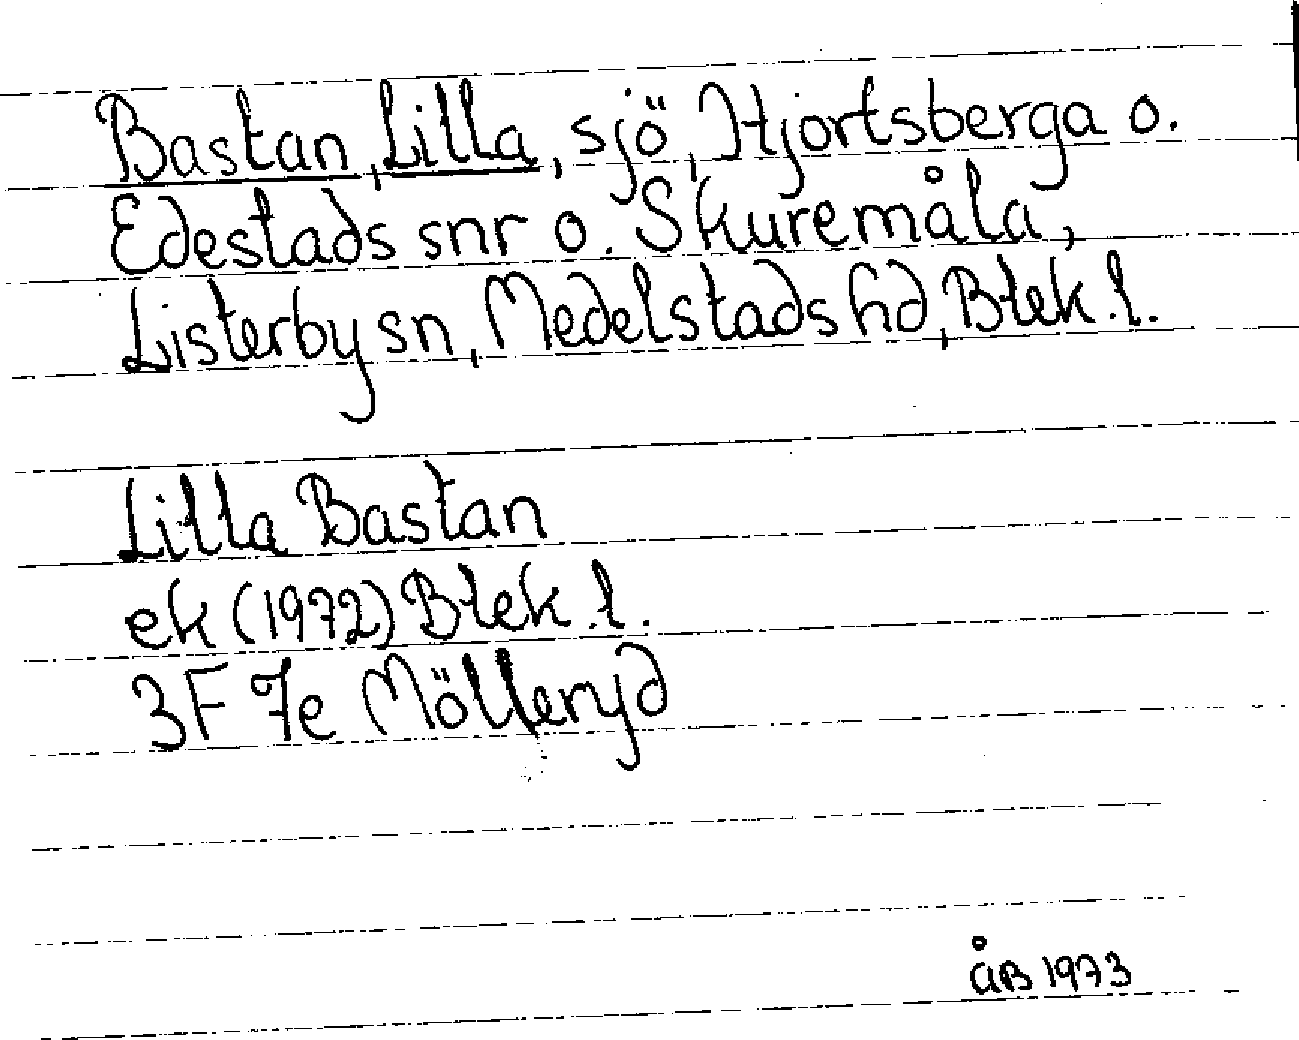 Bastan, Lilla, sjö, Hjortsberga o.
Edestads snr o. Skuremåla,
Listerby sn, Medelstads hd, Blek. l.
Lilla Bastan
ek (1972) Blek. l.
3F 7e Mölleryd
åB 1973